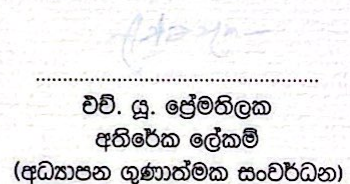 ................................................................
එච්. යූ. ප්‍රේමතිලක
අතිරේක ලේකම්
(අධ්‍යාපන ගුණාත්මක සංවර්ධන)